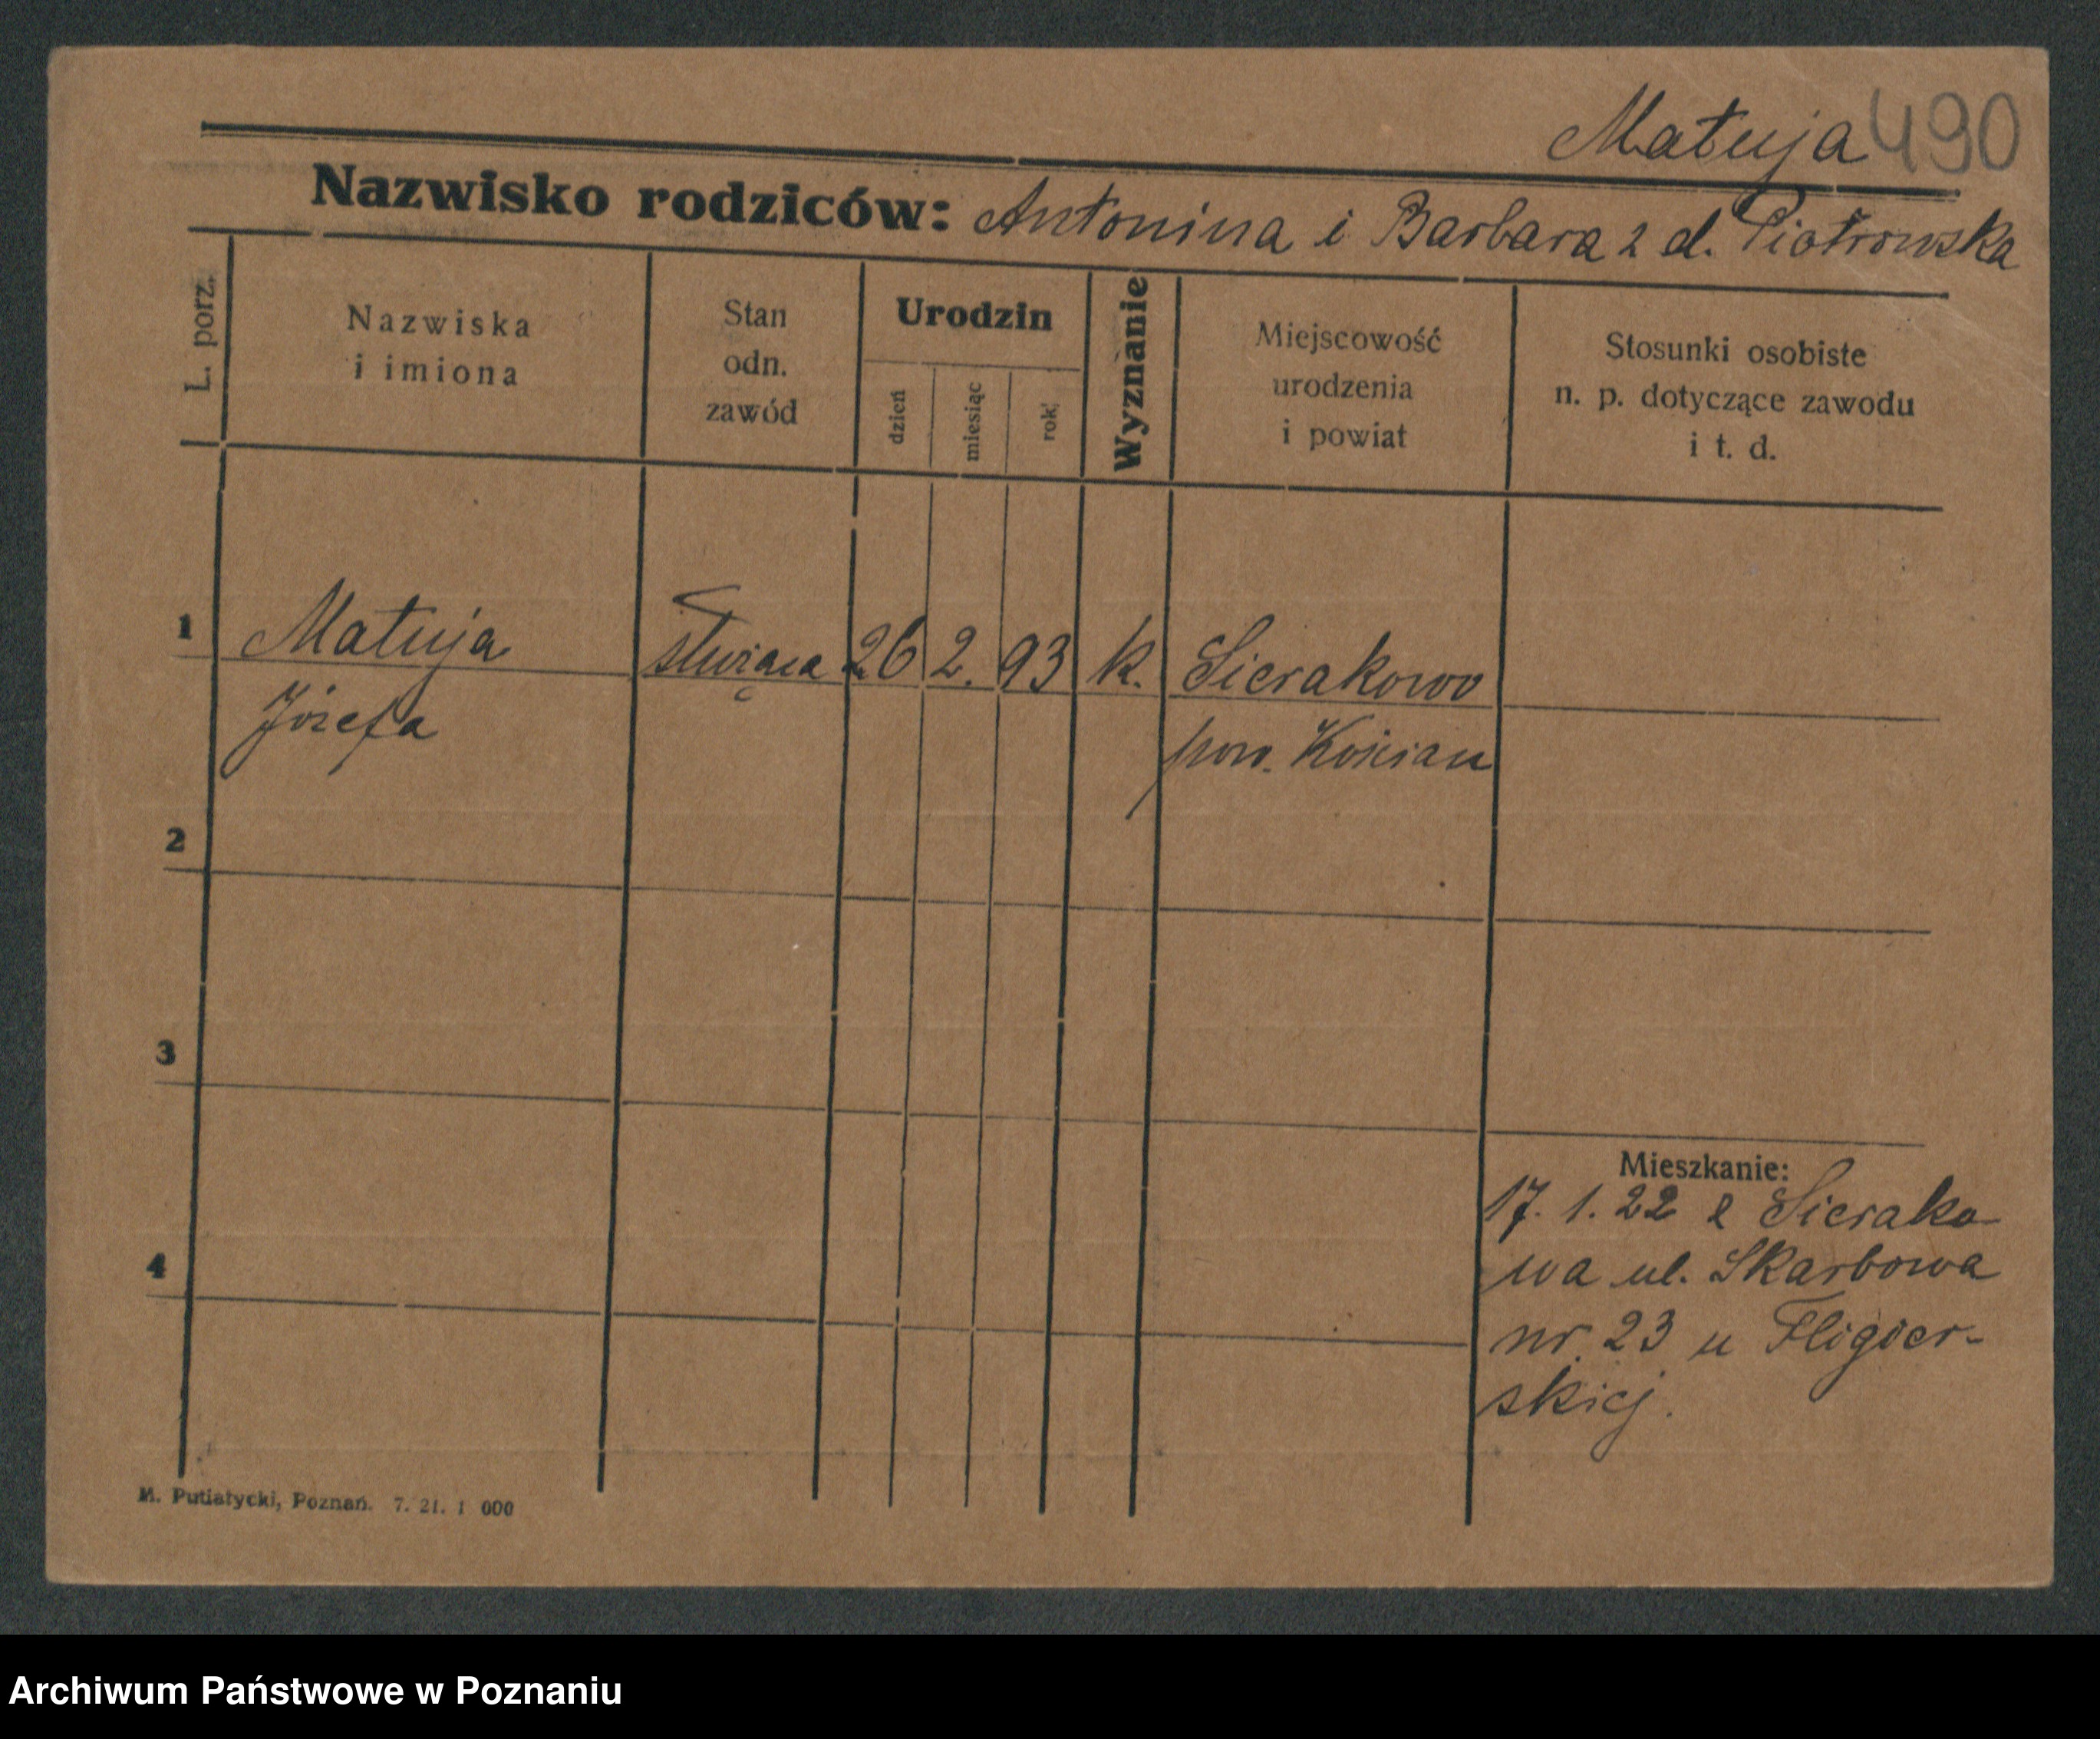 Matuja 490
Nazwisko rodziców: Antonina i Barbara z d. Piotrowska
L. porz.
Nazwiska
i imiona
Stan
odn.
zawód
Urodzin
dzień
miesiąc
rok
Wyznanie
Miejscowość
urodzenia
i powiat
Stosunki osobiste
n. p. dotyczące zawodu
i t. d.
1 Matuja służąca 26 2. 93 k. Sierakowo
Józefa pow. Kościan
2
3
Mieszkanie:
17. 1. 22 z Sierako-
wa ul. Skarbowa
4
nr. 23 u Fligier-
skiej.
M. Putiatycki, Poznań. 7. 21. 1 000
Archiwum Państwowe w Poznaniu